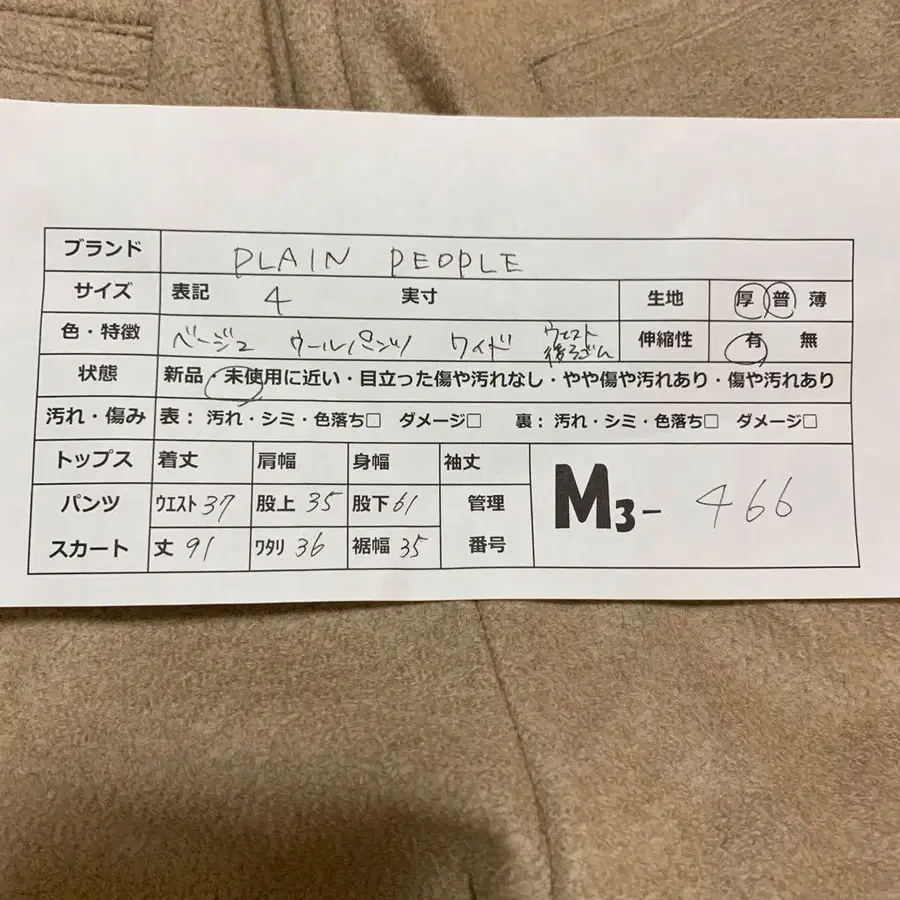 ブランド PLAIN PEOPLE
サイズ 表記 4 実寸 生地 厚 普 薄
色・特徴 ベージュ ウールパンツ ワイド ウエスト後ろゴム 伸縮性 有 無
状態 新品・未使用に近い・目立った傷や汚れなし・やや傷や汚れあり・傷や汚れあり
汚れ・傷み 表：汚れ・シミ・色落ち□ ダメージ□ 裏：汚れ・シミ・色落ち□ ダメージ□
トップス 着丈 肩幅 身幅 袖丈
パンツ ウエスト 37 股上 35 股下 61 管理 M3- 466
スカート 丈 91 ワタリ 36 裾幅 35 番号